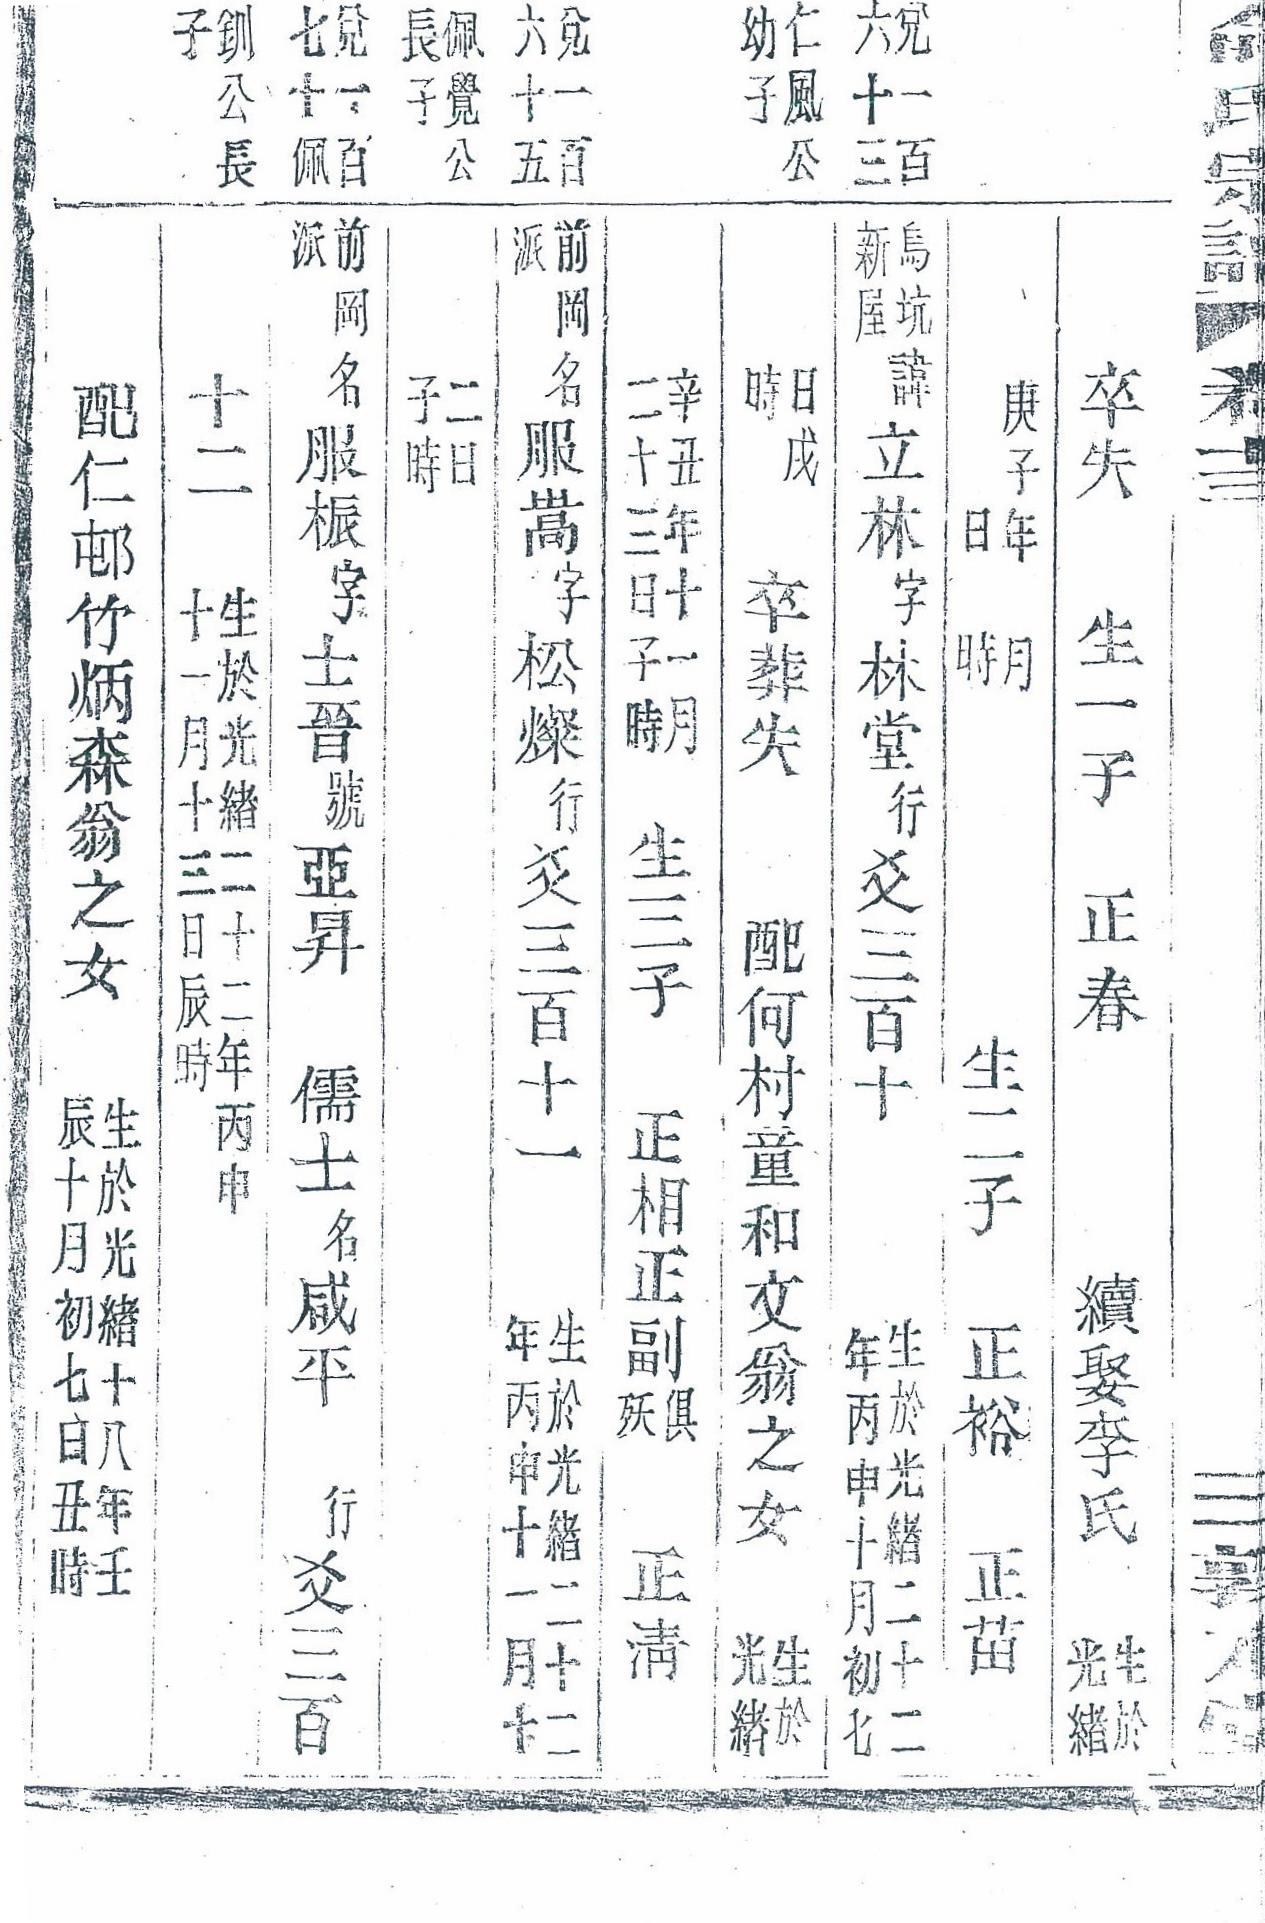 卒失　生一子　正春　續娶李氏　生於光緒
庚子年　月　日　時　生二子　正裕　正苗
兌一百六十三
烏坑新屋諱立林字林堂行爻三百十　生於光緒二十二年丙申十月初七
仁風公幼子
日戌時　卒葬失　配何村童和文翁之女　生於光緒
辛丑年十一月二十三日子時　生三子　正相正副俱殀　正清
兌一百六十五
前岡派名服嵩字松燦行爻三百十一　生於光緒二十二年丙申十一月十
佩覺公長子
二日子時
兌一百七十佩
前岡派名服振字士晉號亞昇　儒士名咸平　行爻三百
釧公長子
十二　生於光緒二十二年丙申十一月十三日辰時
配仁邨竹炳森翁之女　生於光緒十八年壬辰十月初七日丑時